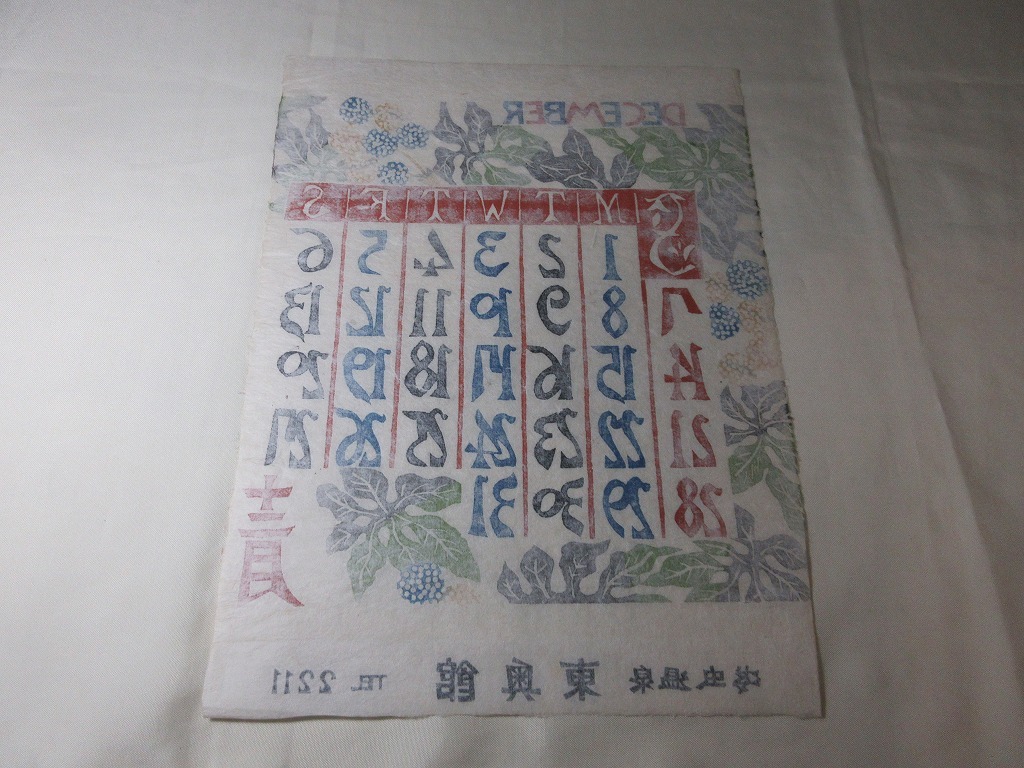 DECEMBER
S M T W T F S
1 2 3 4 5 6
7 8 9 10 11 12 13
14 15 16 17 18 19 20
21 22 23 24 25 26 27
28 29 30 31
十二月
浅虫温泉 東奥館 TEL 2211